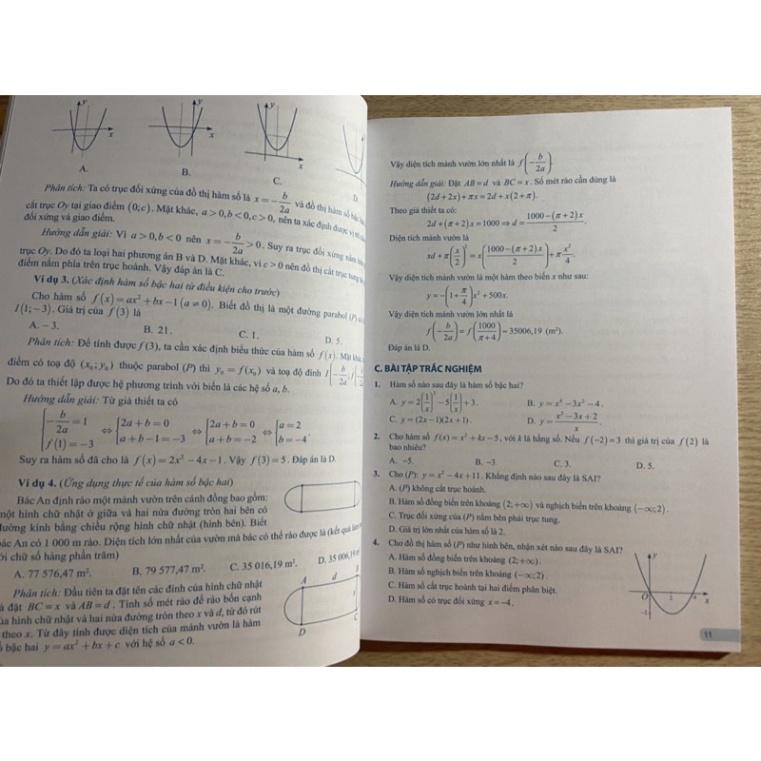 y
x
y
x
y
x
A.
B.
C.
D.
Phân tích: Ta có trục đối xứng của đồ thị hàm số là x = −b/2a và đồ thị hàm số bậc
cắt trục Oy tại giao điểm (0;c). Mặt khác, a > 0, b < 0, c > 0, nên ta xác định được vị trí
đối xứng và giao điểm.
Hướng dẫn giải: Vì a > 0, b < 0 nên x = −b/2a > 0. Suy ra trục đối xứng nằm
trục Oy. Do đó ta loại hai phương án B và D. Mặt khác, vì c > 0 nên đồ thị cắt trục tung
điểm nằm phía trên trục hoành. Vậy đáp án là C.
Ví dụ 3. (Xác định hàm số bậc hai từ điều kiện cho trước)
Cho hàm số f(x) = ax² + bx − 1 (a ≠ 0). Biết đồ thị là một đường parabol (P)
I(1;−3). Giá trị của f(3) là
A. − 3. B. 21. C. 1. D. 5.
Phân tích: Để tính được f(3), ta cần xác định biểu thức của hàm số f(x). Mặt
điểm có toạ độ (x₀; y₀) thuộc parabol (P) thì y₀ = f(x₀) và toạ độ đỉnh I
Do đó ta thiết lập được hệ phương trình với biến là các hệ số a, b.
Hướng dẫn giải: Từ giả thiết ta có
{−b/2a = 1; f(1) = −3 ⇔ {2a + b = 0; a + b − 1 = −3 ⇔ {2a + b = 0; a + b = −2 ⇔ {a = 2; b = −4.
Suy ra hàm số đã cho là f(x) = 2x² − 4x − 1. Vậy f(3) = 5. Đáp án là D.
Ví dụ 4. (Ứng dụng thực tế của hàm số bậc hai)
Bác An định rào một mảnh vườn trên cánh đồng bao gồm:
một hình chữ nhật ở giữa và hai nửa đường tròn hai bên có
đường kính bằng chiều rộng hình chữ nhật (hình bên). Biết
bác An có 1 000 m rào. Diện tích lớn nhất của vườn mà bác có thể rào được là (kết quả làm
với chữ số hàng phần trăm)
A. 77 576,47 m². B. 79 577,47 m². C. 35 016,19 m². D. 35 006,19
Phân tích: Đầu tiên ta đặt tên các đỉnh của hình chữ nhật
đặt BC = x và AB = d. Tính số mét rào để rào bốn cạnh
của hình chữ nhật và hai nửa đường tròn theo x và d, từ đó rút
theo x. Từ đây tính được diện tích của mảnh vườn là hàm
bậc hai y = ax² + bx + c với hệ số a < 0.
A
d
D
C
Vậy diện tích mảnh vườn lớn nhất là f(−b/2a).
Hướng dẫn giải: Đặt AB = d và BC = x. Số mét rào cần dùng là
(2d + 2x) + πx = 2d + x(2 + π).
Theo giả thiết ta có:
2d + (π + 2)x = 1000 ⇒ d = (1000 − (π + 2)x)/2.
Diện tích mảnh vườn là
xd + π(x/2)² = x((1000 − (π + 2)x)/2) + π x²/4.
Vậy diện tích mảnh vườn là một hàm theo biến x như sau:
y = −(1 + π/4)x² + 500x.
Vậy diện tích mảnh vườn lớn nhất là
f(−b/2a) = f(1000/(π + 4)) ≈ 35006,19 (m²).
Đáp án là D.
C. BÀI TẬP TRẮC NGHIỆM
1. Hàm số nào sau đây là hàm số bậc hai?
A. y = 2(1/x)² − 5(1/x) + 3. B. y = x⁴ − 3x² − 4.
C. y = (2x − 1)(2x + 1). D. y = (x² − 3x + 2)/x.
2. Cho hàm số f(x) = x² + kx − 5, với k là hằng số. Nếu f(−2) = 3 thì giá trị của f(2) là
bao nhiêu?
A. −5. B. −3. C. 3. D. 5.
3. Cho (P): y = x² − 4x + 11. Khẳng định nào sau đây là SAI?
A. (P) không cắt trục hoành.
B. Hàm số đồng biến trên khoảng (2;+∞) và nghịch biến trên khoảng (−∞;2).
C. Trục đối xứng của (P) nằm bên phải trục tung.
D. Giá trị lớn nhất của hàm số là 2.
4. Cho đồ thị hàm số (P) như hình bên, nhận xét nào sau đây là SAI?
A. Hàm số đồng biến trên khoảng (2;+∞).
B. Hàm số nghịch biến trên khoảng (−∞;2).
C. Hàm số cắt trục hoành tại hai điểm phân biệt.
D. Hàm số có trục đối xứng x = −4.
y
O
x
11